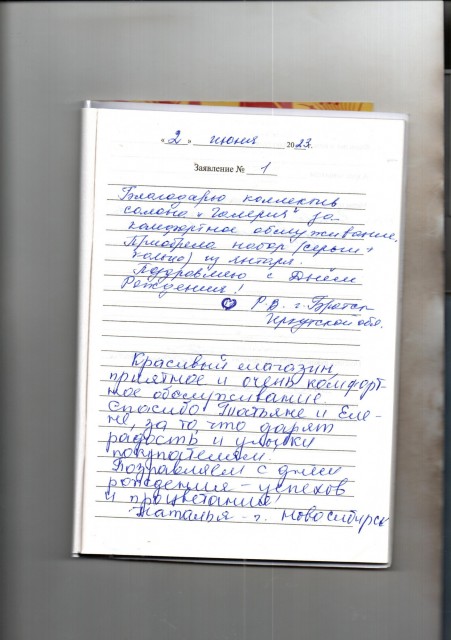 « 2 » июня 2023г.
Заявление № 1
Благодарю коллектив
салона „Галерия" за
комфортное обслуживание.
Приобрела набор (серьги +
кольцо) из янтаря.
Поздравляю с Днём
Рождения!
Р.В. г. Братск
Иркутской обл.
Красивый магазин,
приятное и очень комфорт-
ное обслуживание.
Спасибо Татьяне и Еле-
не, за то, что дарят
радость и улыбки
покупателям.
Поздравляем с днем
рождения - успехов
и процветания!
Наталья - г. Новосибирск